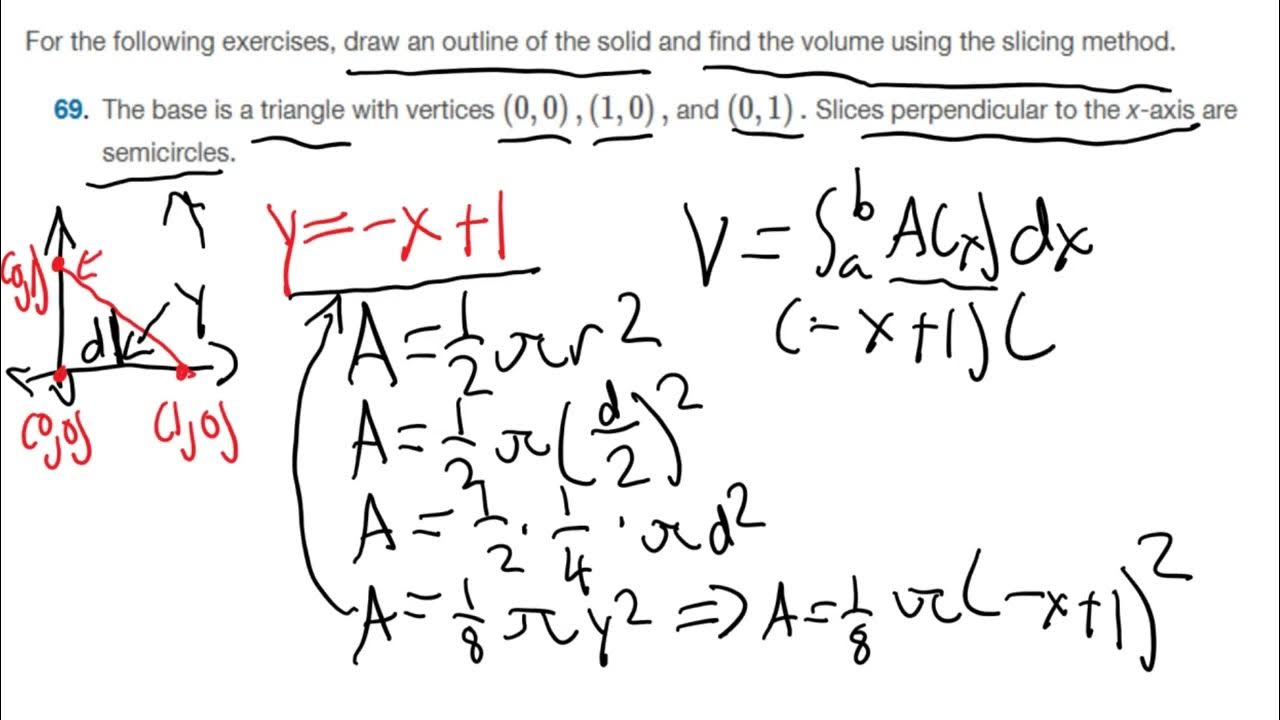 For the following exercises, draw an outline of the solid and find the volume using the slicing method.
69. The base is a triangle with vertices (0, 0), (1, 0), and (0, 1). Slices perpendicular to the x-axis are
semicircles.
y=-x+1
V = ∫ₐᵇ A(x) dx
(-x+1)(
(0,1)
d
y
(0,0)
(1,0)
A = 1/2 πr²
A = 1/2 π(d/2)²
A = 1/2 · 1/4 · πd²
A = 1/8 πy² => A = 1/8 π(-x+1)²